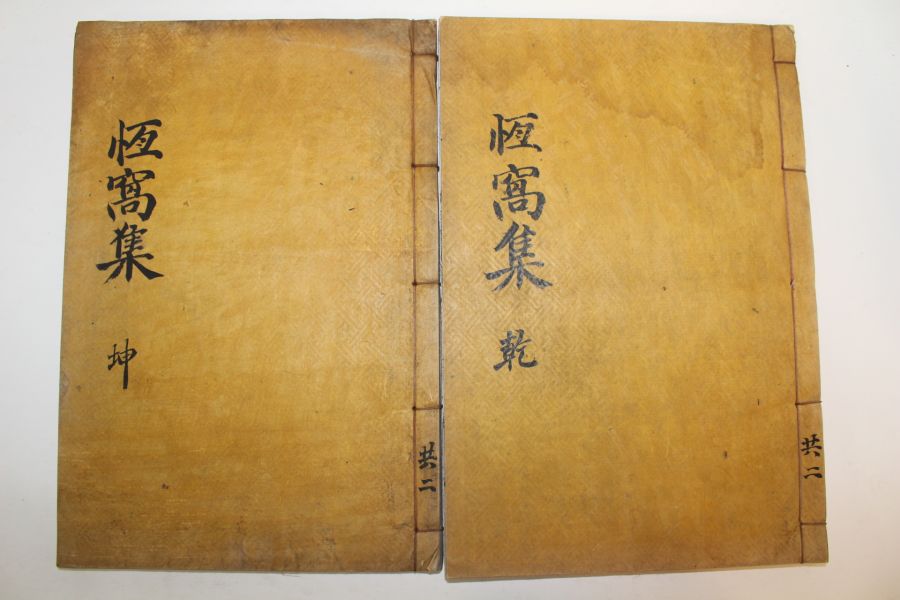 恆窩集
乾
共二
恆窩集
坤
共二